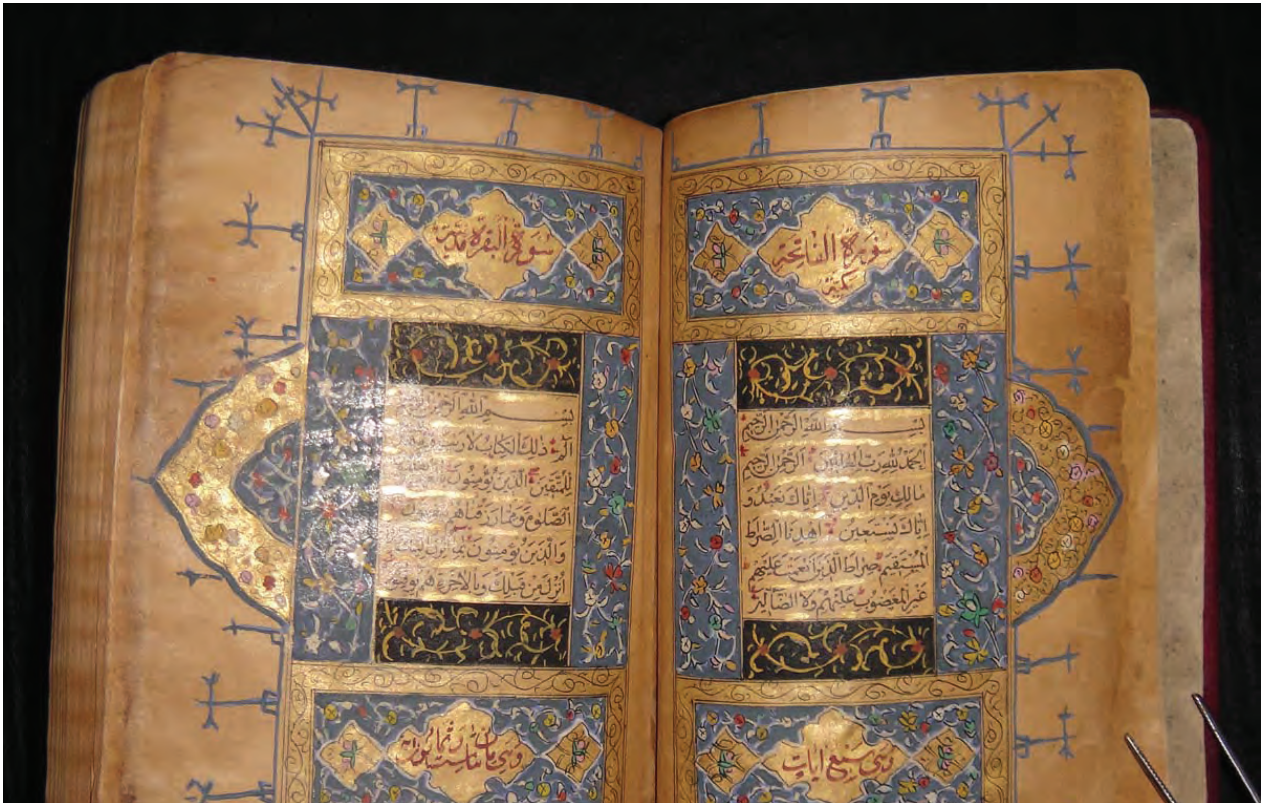 سورة الفاتحة
مكية
بسم الله الرحمن الرحيم
الحمد لله رب العالمين الرحمن الرحيم
مالك يوم الدين اياك نعبد و
اياك نستعين اهدنا الصراط
المستقيم صراط الذين انعمت عليهم
غير المغضوب عليهم ولا الضالين
وهي سبع ايات
سورة البقرة مدنية
بسم الله الرحمن
الم ذلك الكتاب لا ريب
للمتقين الذين يؤمنون
الصلوة ومما رزقناهم
والذين يؤمنون بما انزل اليك
انزل من قبلك وبالاخرة هم يوقنون
وهي مائتان